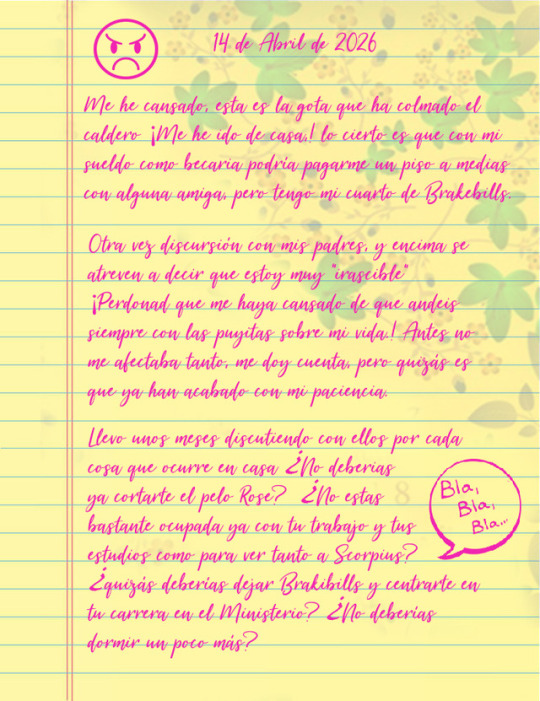 14 de Abril de 2026
Me he cansado, esta es la gota que ha colmado el
caldero ¡Me he ido de casa,! lo cierto es que con mi
sueldo como becaria podría pagarme un piso a medias
con alguna amiga, pero tengo mi cuarto de Brakebills.
Otra vez discursión con mis padres, y encima se
atreven a decir que estoy muy "irascible"
¡Perdonad que me haya cansado de que andeis
siempre con las puyitas sobre mi vida! Antes no
me afectaba tanto, me doy cuenta, pero quizás es
que ya han acabado con mi paciencia.
Llevo unos meses discutiendo con ellos por cada
cosa que ocurre en casa ¿No deberías
ya cortarte el pelo Rose? ¿No estas
bastante ocupada ya con tu trabajo y tus
estudios como para ver tanto a Scorpius?
¿quizás deberías dejar Brakibills y centrarte en
tu carrera en el Ministerio? ¿No deberías
dormir un poco más?
Bla,
Bla,
Bla...